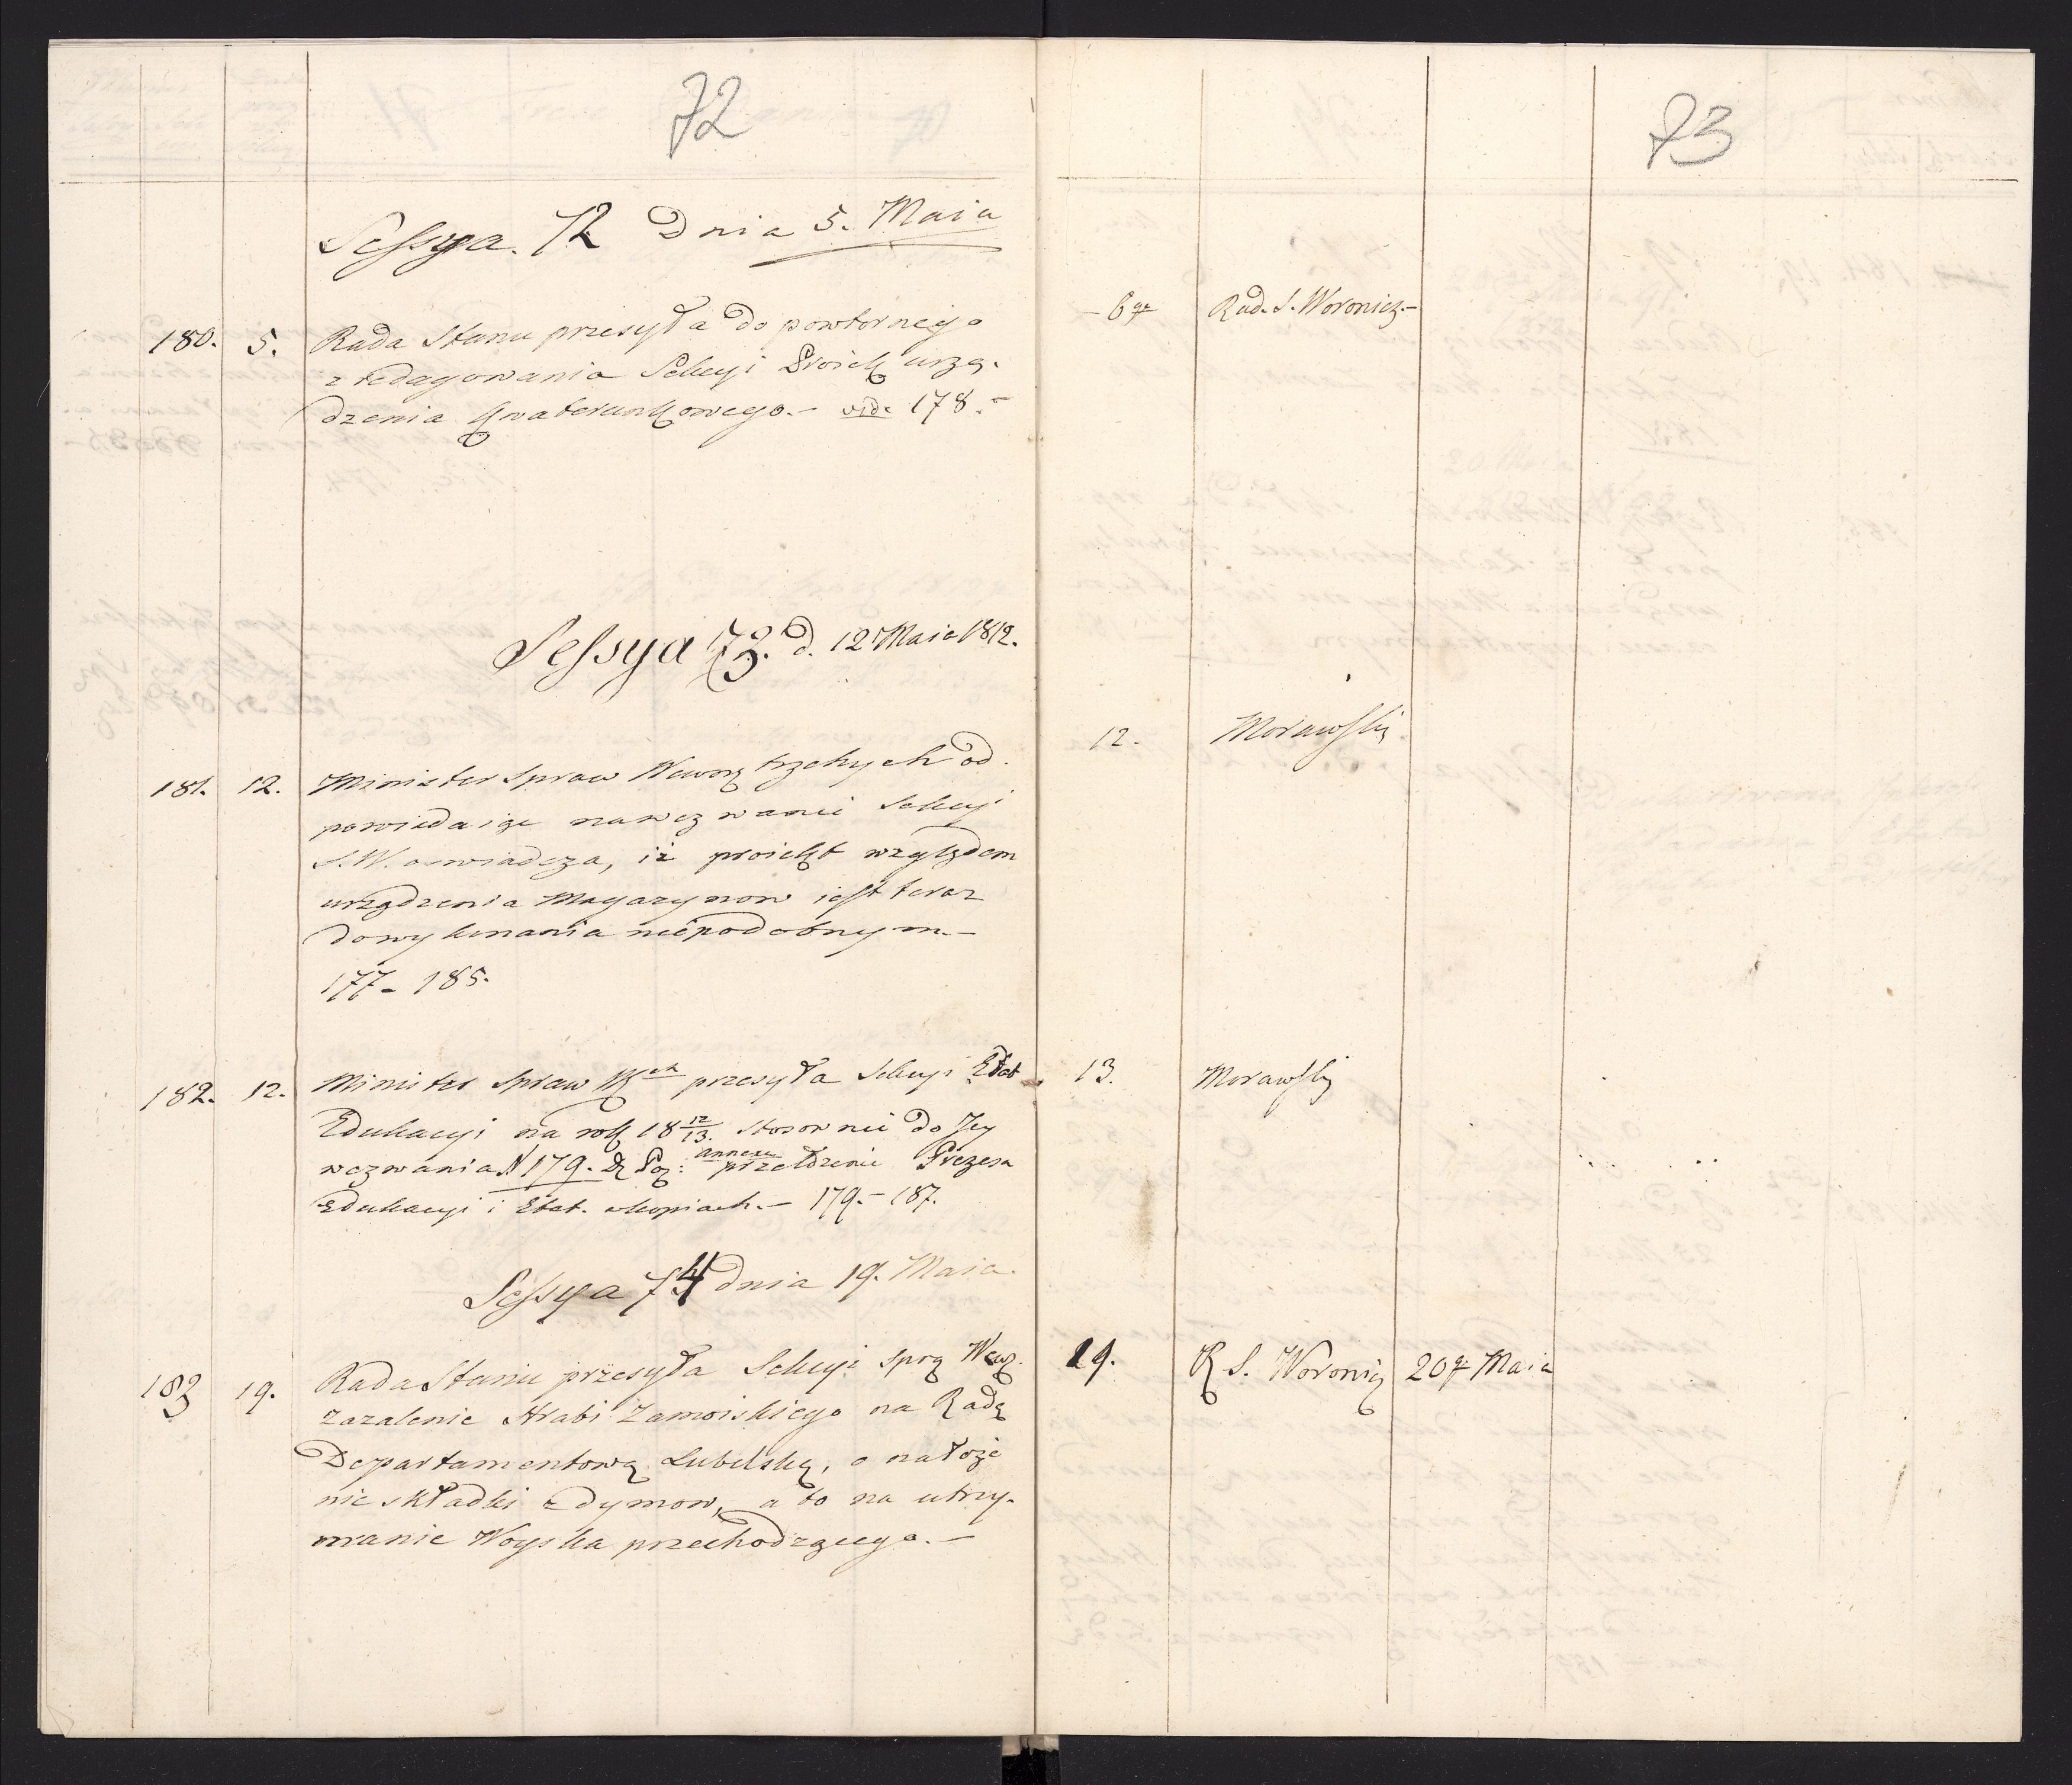 72
Sessya. 72 Dnia 5. Maia
180. 5. Rada Stanu przesyła do powtornego
zredagowania Sekcyi Proiekt urzą-
dzenia Kwaterunkowego.- vide 178.-
Sessya 73. d. 12 Maia 1812.
181. 12. Minister Spraw Wewnętrznych od-
powiadaiąc na wezwanie Sekcyi
S.W. oswiadcza, iż proiekt względem
urządzenia Magazynow iest teraz
do wykonania niepodobnym.-
177- 185.
182. 12. Minister Spraw przesyła Sekcyi Etat
Edukacyi na rok 18 12/13. stosownie do Jey
wezwania N 179. annexa przełożenie Prezesa
Edukacyi i Etat. w kopiach.- 179.- 187.
Sessya 74 dnia 19. Maia.
183 19. Rada Stanu przesyła Sekcyi Spra Wew.
Zazalenie Hrabi Zamoiskiego na Radę
Departamentową Lubelską, o nałoże
nie składki z dymow, a to na utrzy-
manie Woyska przechodzącego.-
73
- 6go Rad. S. Woronicz.-
12. Morawski
13. Morawski
19. R. S. Woronicz 20go Maia